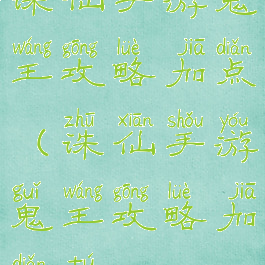 诛仙手游鬼
wáng gōng lüè jiā diǎn
王攻略加点
zhū xiān shǒu yóu
（诛仙手游
guǐ wáng gōng lüè jiā
鬼王攻略加